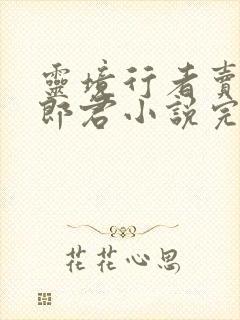 靈境行者賣
郎君小說完
花花心思